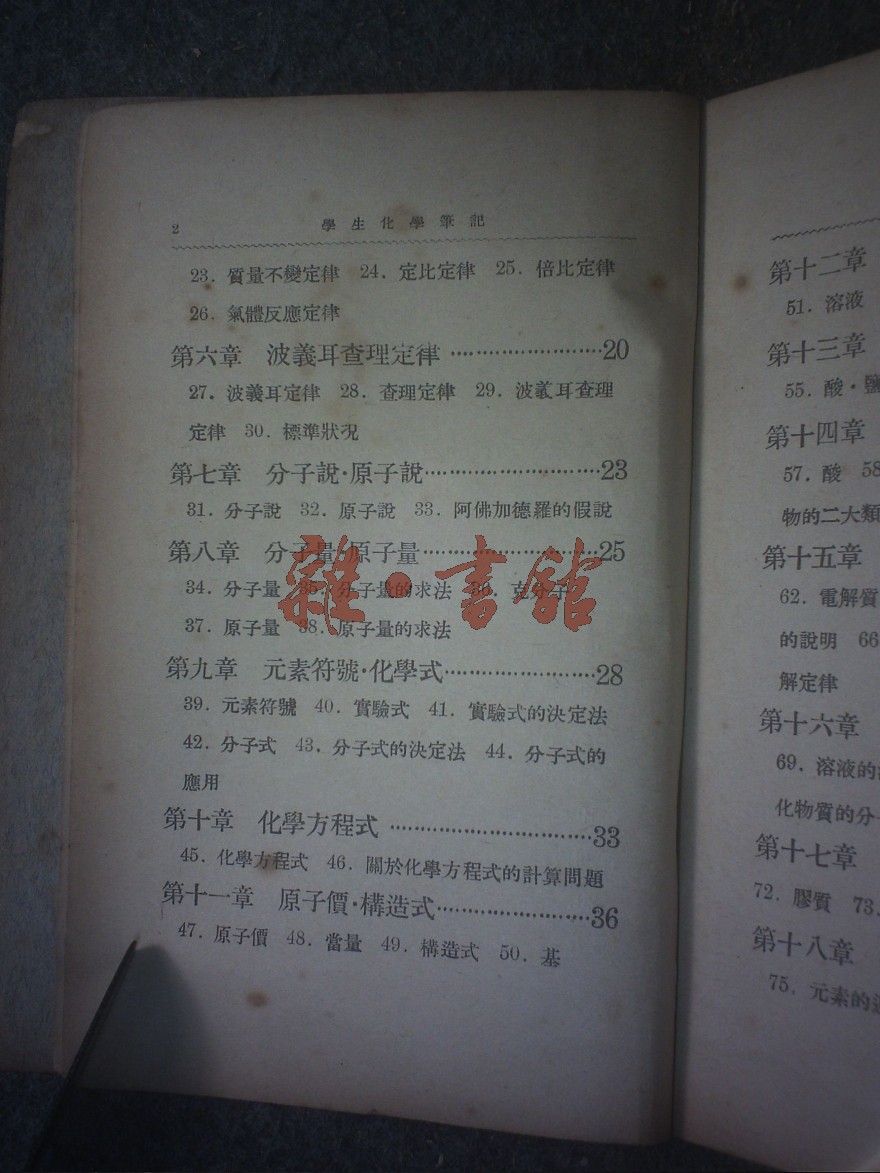 2 學生化學筆記
23. 質量不變定律 24. 定比定律 25. 倍比定律
26. 氣體反應定律
第六章 波義耳查理定律 ························20
27. 波義耳定律 28. 查理定律 29. 波義耳查理
定律 30. 標準狀况
第七章 分子說·原子說··························23
31. 分子說 32. 原子說 33. 阿佛加德羅的假說
第八章 分子量·原子量··························25
34. 分子量 35. 分子量的求法 36. 克分子
37. 原子量 38. 原子量的求法
第九章 元素符號·化學式······················28
39. 元素符號 40. 實驗式 41. 實驗式的決定法
42. 分子式 43. 分子式的決定法 44. 分子式的
應用
第十章 化學方程式 ······························33
45. 化學方程式 46. 關於化學方程式的計算問題
第十一章 原子價·構造式······················36
47. 原子價 48. 當量 49. 構造式 50. 基
雜·書館
第十二章
51. 溶液
第十三章
55. 酸·鹽
第十四章
57. 酸 58
物的二大類
第十五章
62. 電解質
的說明 66
解定律
第十六章
69. 溶液的
化物質的分
第十七章
72. 膠質 73.
第十八章
75. 元素的